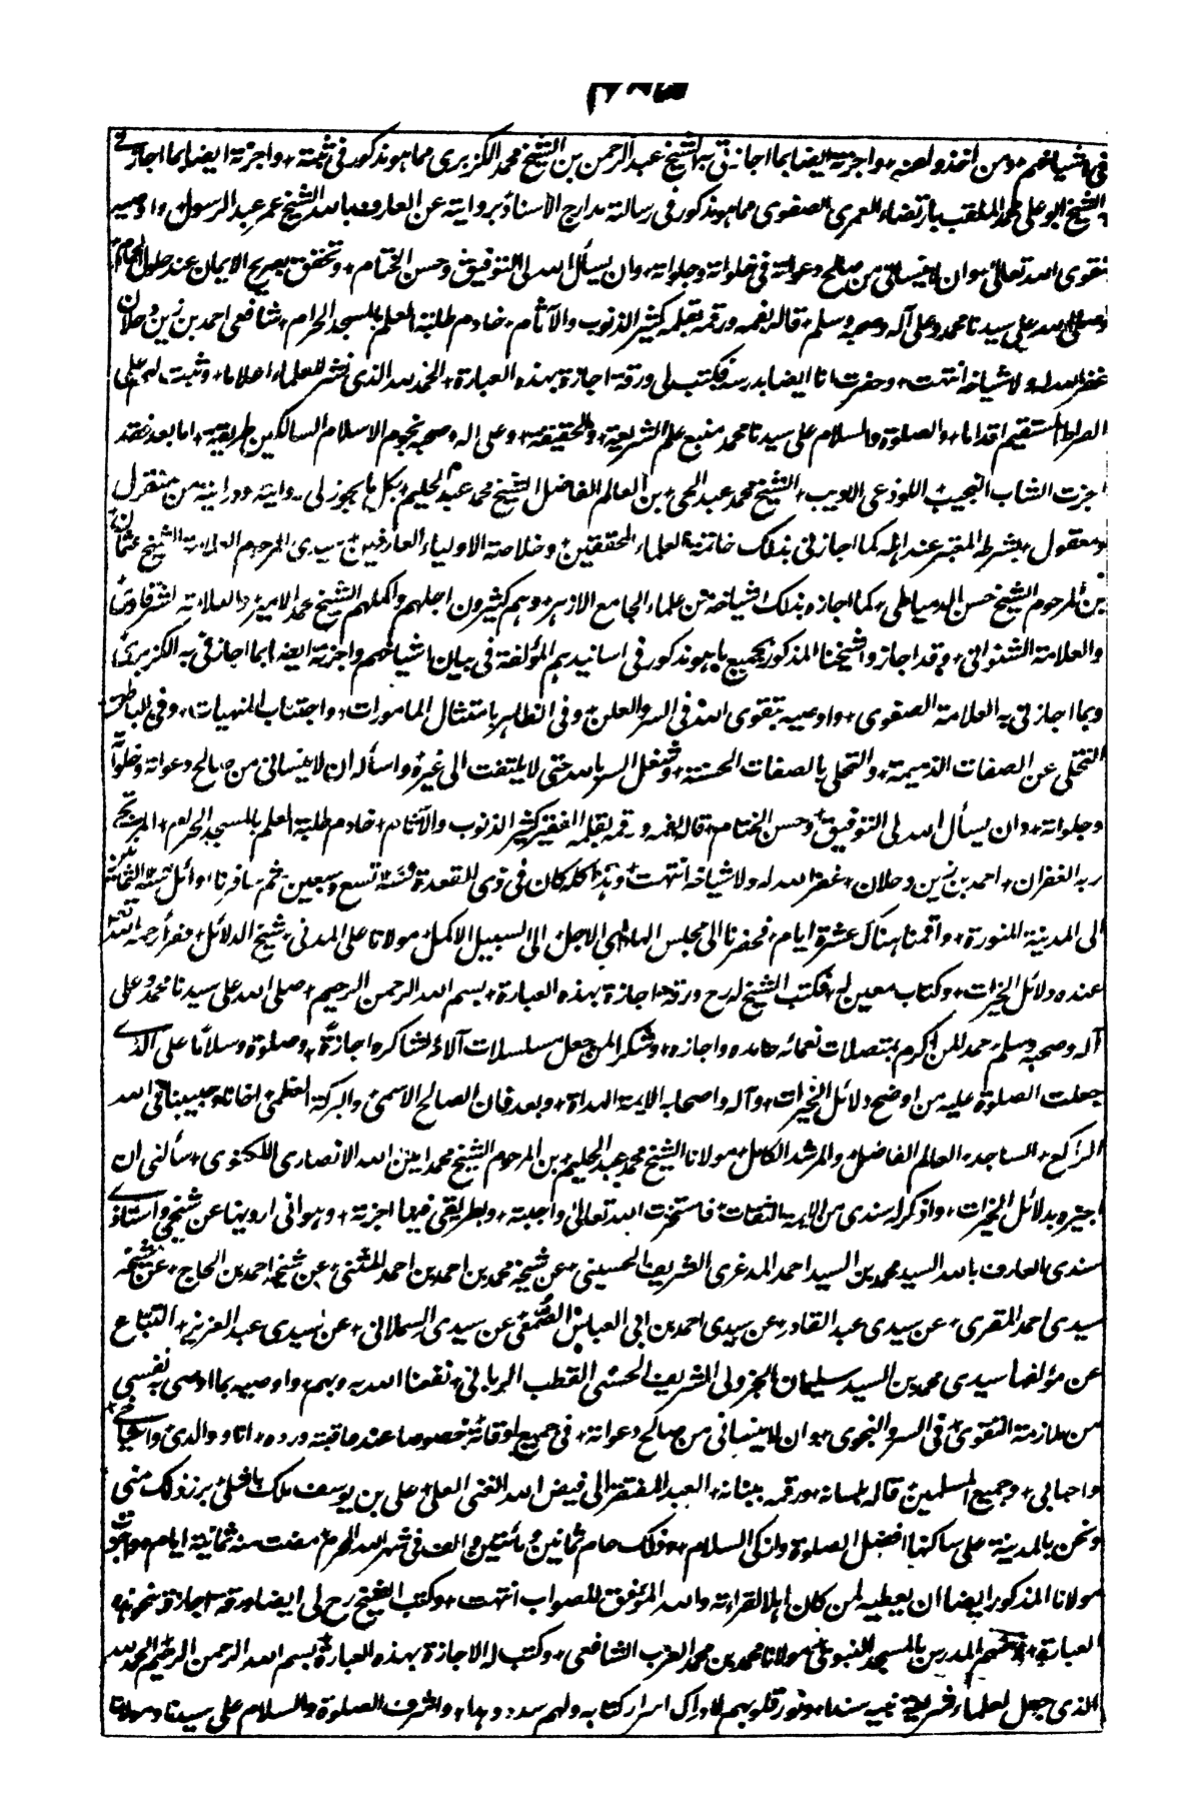 في اشياخهم ومن اخذوا عنه واجزته ايضا بما اجازني به الشيخ عبد الرحمن بن الشيخ محمد الكزبري مما هو مذكور في ثبته واجزته ايضا بما اجازني
الشيخ ابو علي محمد الملقب بارتضاء العمري الصفوي مما هو مذكور في رسالة مدارج الاسناد بروايته عن العارف بالله الشيخ عمر عبد الرسول واوصيه
بتقوى الله تعالى وان لا ينساني من صالح دعواته في خلواته وجلواته وان يسأل الله لي التوفيق وحسن الختام وتحقق بصريح الايمان عند حلول الحمام
وصلى الله على سيدنا محمد وعلى آله وصحبه وسلم قاله بفمه ورقمه بقلمه كثير الذنوب والآثام خادم طلبة العلم بالمسجد الحرام شافعي احمد بن زين دحلان
غفر الله له ولاشياخه انتهت وحضرت انا ايضا بدرسه فكتب لي ورقة اجازة بهذه العبارة الحمد لله الذي نشر للعلماء اعلاما وثبت لهم على
الصراط المستقيم اقداما والصلوة والسلام على سيدنا محمد منبع علم الشريعة والحقيقة وعلى اله وصحبه نجوم الاسلام السالكين طريقته اما بعد فقد
اجزت الشاب النجيب اللوذعي الاديب الشيخ محمد عبد الحي بن العالم الفاضل الشيخ محمد عبد الحليم بكل ما يجوز لي روايته ودرايته من منقول
ومعقول بشرطه المعتبر عند اهله كما اجازني بذلك خاتمة العلماء المحققين وخلاصة الاولياء العارفين سيدي المرحوم العلامة الشيخ عثمان
بن المرحوم الشيخ حسن الدمياطي كما اجازه بذلك اشياخه من علماء الجامع الازهر وهم كثيرون اجلهم واكملهم الشيخ محمد الامير والعلامة الشرقاوي
والعلامة الشنواني وقد اجازوا شيخنا المذكور بجميع ما هو مذكور في اسانيدهم المؤلفة في بيان اشياخهم واجزته ايضا بما اجازني به الكزبري
وبما اجازني به العلامة الصفوي واوصيه بتقوى الله في السر والعلن وفي الظاهر بامتثال المامورات واجتناب المنهيات وفي الباطن
التخلي عن الصفات الذميمة والتحلي بالصفات الحسنة وشغل السر بالله حتى لا يلتفت الى غيره واسأله ان لا ينساني من صالح دعواته وخلواته
وجلواته وان يسأل الله لي التوفيق وحسن الختام قاله بفمه ورقمه بقلمه الفقير كثير الذنوب والآثام خادم طلبة العلم بالمسجد الحرام المرتجي
ربه الغفران احمد بن زين دحلان غفر الله له ولاشياخه انتهت وهذا كله كان في ذي القعدة سنة تسع وسبعين ثم سافرنا اوائل سنة الثمانين
الى المدينة المنورة واقمنا هناك عشرة ايام فحضرنا الى مجلس الهادي الاجل الى السبيل الاكمل مولانا علي المدني شيخ الدلائل فقرأ رحمه الله
عنده دلائل الخيرات وكتاب معين له فكتب الشيخ له رح ورقة اجازة بهذه العبارة بسم الله الرحمن الرحيم صلى الله على سيدنا محمد وعلى
آله وصحبه وسلم حمدا لمن اكرم بمتصلات نعمائه حامده واجازه وشكرا لمن جعل مسلسلات آلائه لشاكره اجازة وصلوة وسلاما على الذي
جعلت الصلوة عليه من اوضح دلائل الخيرات وآله واصحابه الايمة الهداة وبعد فان الصالح الاسمى والبركة العظمى اخانا وحبيبنا في الله
الراكع الساجد العالم الفاضل والمرشد الكامل مولانا الشيخ محمد عبد الحليم بن المرحوم الشيخ محمد امين الله الانصاري اللكنوي سألني ان
اجيزه بدلائل الخيرات واذكر له سندي من الايمة الثقات فاستخرت الله تعالى واجبته وبطريقي فيها اجزته وهو اني ارويها عن شيخي واستاذي
سندي العارف بالله السيد محمد بن السيد احمد المدغري الشريف الحسيني عن شيخه محمد بن احمد بن احمد المثنى عن شيخه احمد بن الحاج عن شيخه
سيدي احمد المقري عن سيدي عبد القادر عن سيدي احمد بن ابي العباس الصمعي عن سيدي السملالي عن سيدي عبد العزيز التباع
عن مؤلفها سيدي محمد بن السيد سليمان الجزولي الشريف الحسني القطب الرباني نفعنا الله به وبهم واوصيه بما اوصي به نفسي
من ملازمة التقوى في السر والنجوى وان لا ينساني من صالح دعواته في جميع اوقاته خصوصا عند عاقبة ورده انا ووالدي واشياخي
واحبابي وجميع المسلمين قاله بلسانه ورقمه ببنانه العبد المفتقر الى فيض الله الغني العلي علي بن يوسف ملك باشلي برز ذلك مني
ونحن بالمدينة على ساكنها افضل الصلوة وازكى السلام وذلك عام ثمانين ومائتين والف في شهر الله المحرم مضت منه ثمانية ايام واجزت
مولانا المذكور ايضا ان يعطيه لمن كان اهلا لقراءته والله الموفق للصواب انتهت وكتب الشيخ رح لي ايضا ورقة اجازة نحو هذه
العبارة المدرس بالمسجد النبوي مولانا محمد بن محمد العزب الشافعي وكتب له الاجازة بهذه العبارة بسم الله الرحمن الرحيم الحمد لله
الذي جعل لعلماء شريعة نبيه سندا ونور قلوبهم لادراك اسرار كتابه ولهم سدد وهدا واشرف الصلوة والسلام على سيدنا ومولانا